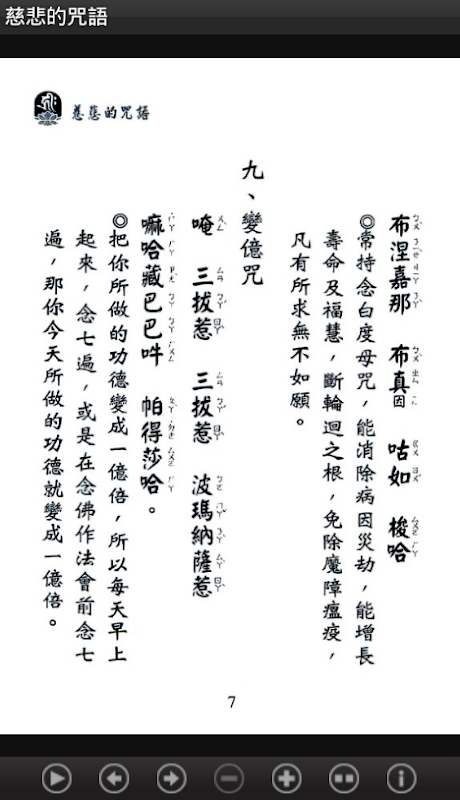 慈悲的咒語
慈悲的咒語
布涅嘉那　布真因　咕如　梭哈
◎常持念白度母咒，能消除病因災劫，能增長
壽命及福慧，斷輪迴之根，免除魔障瘟疫，
凡有所求無不如願。
九、變億咒
唵　三拔惹　三拔惹　波瑪納薩惹
嘛哈藏巴巴吽　帕得莎哈。
◎把你所做的功德變成一億倍，所以每天早上
起來，念七遍，或是在念佛作法會前念七
遍，那你今天所做的功德就變成一億倍。
7